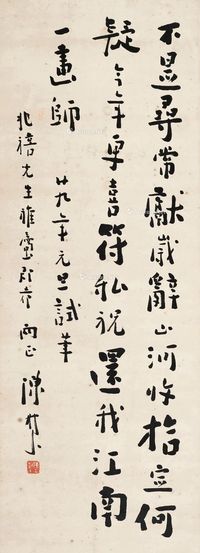 不是尋常獻歲辭山河收拾定何
疑今年更喜符私祝還我江南
一畫師
廿九年元旦試筆
兆禧先生雅屬即希 兩正 陳樹人